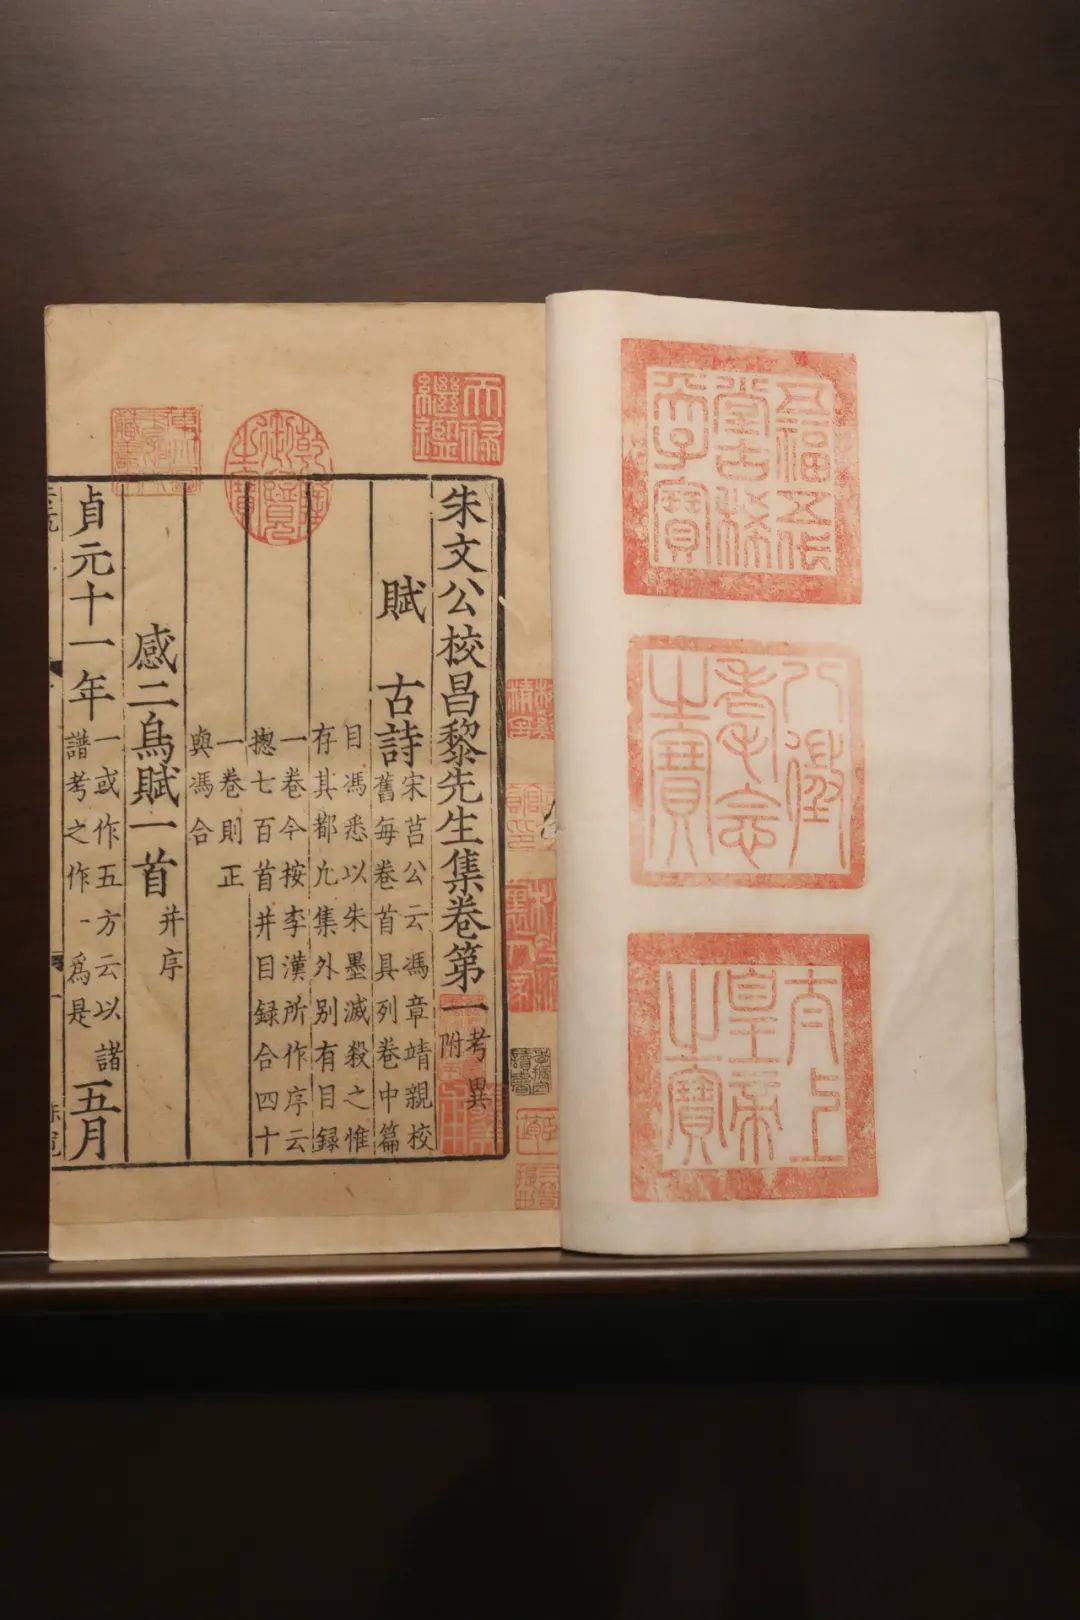 五福五代
堂古稀
天子寶
八徵
耄念
之寶
太上
皇帝
之寶
天祿
繼鑑
乾隆
御覽
之寶
朱文公校昌黎先生集卷第一考異
附
賦 古詩宋莒公云馮章靖親校
舊每卷首具列卷中篇
目馮悉以朱墨滅殺之惟
存其都凢集外别有目録
一卷今按李漢所作序云
揔七百首并目録合四十
一卷則正
與馮合
感二鳥賦一首并序
貞元十一年一或作五方云以諸
譜考之作一為是
五月